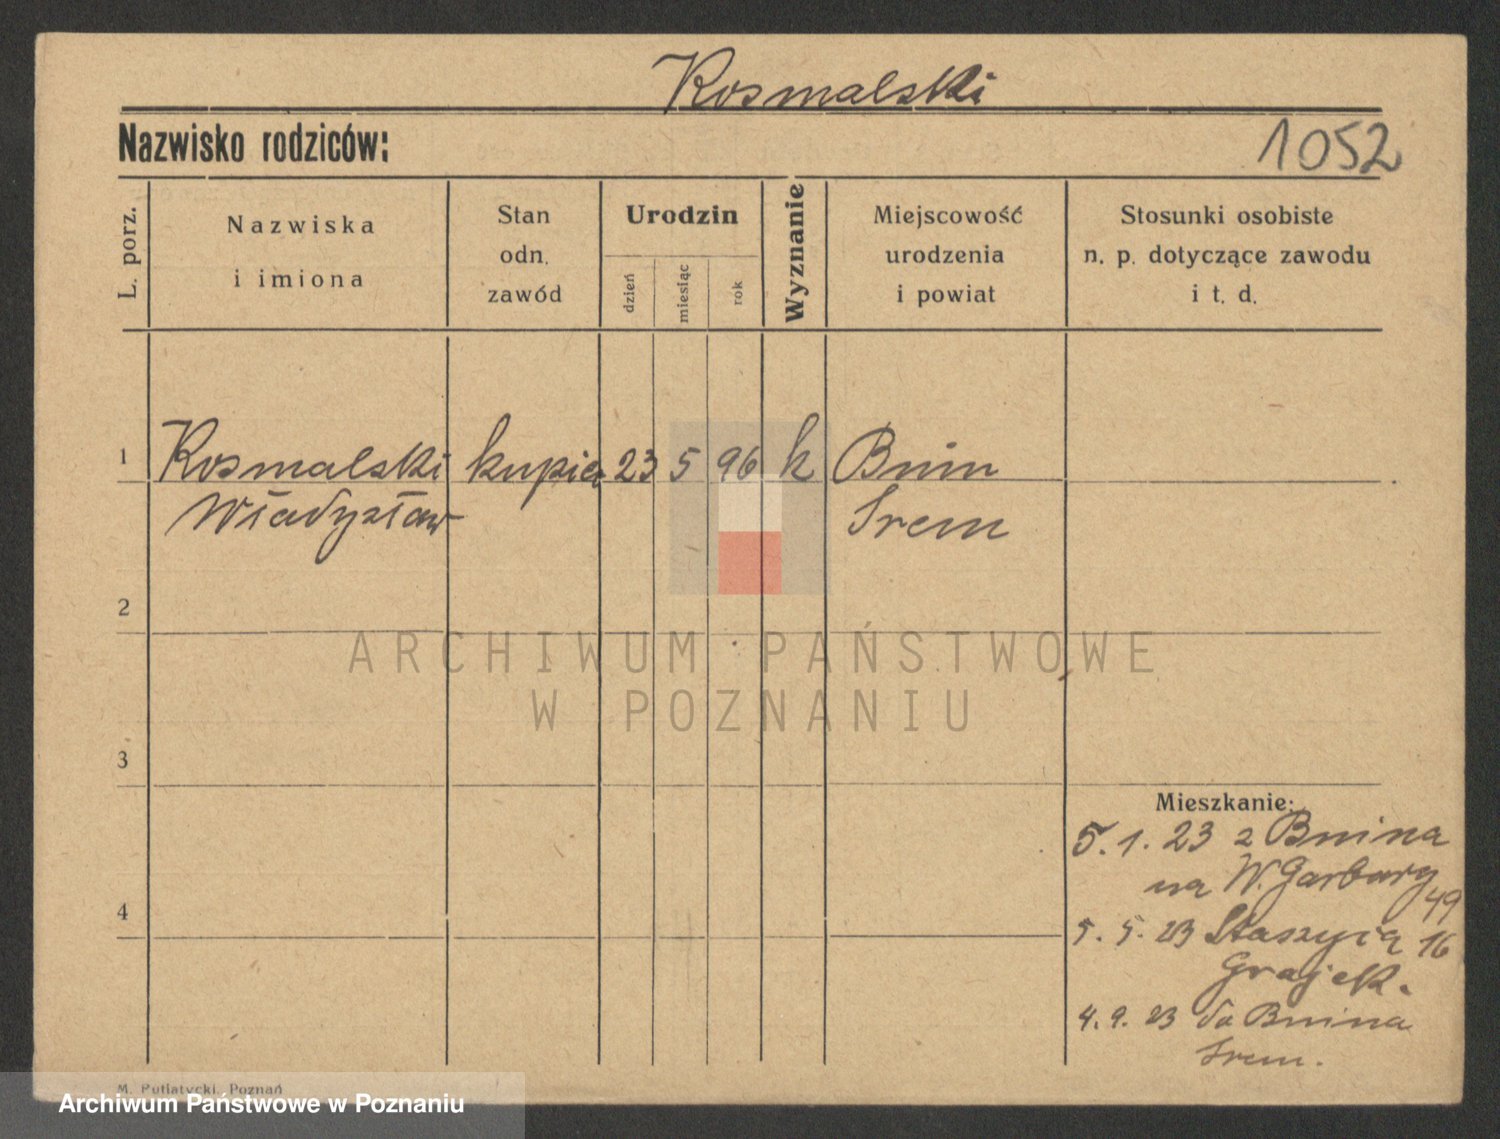 Kosmalski
Nazwisko rodziców:
1052
L. porz.
Nazwiska
i imiona
Stan
odn.
zawód
Urodzin
dzień
miesiąc
rok
Wyznanie
Miejscowość
urodzenia
i powiat
Stosunki osobiste
n. p. dotyczące zawodu
i t. d.
1 Kosmalski kupiec 23 5 96 k Bnin
Władysław Śrem
2
ARCHIWUM PAŃSTWOWE
W POZNANIU
3
Mieszkanie:
5. 1. 23 z Bnina
na W. Garbary
49
4
5. 5. 23 Staszyca 16
Grajek.
4. 9. 23 do Bnina
Śrem.
M. Putiatycki, Poznań
Archiwum Państwowe w Poznaniu